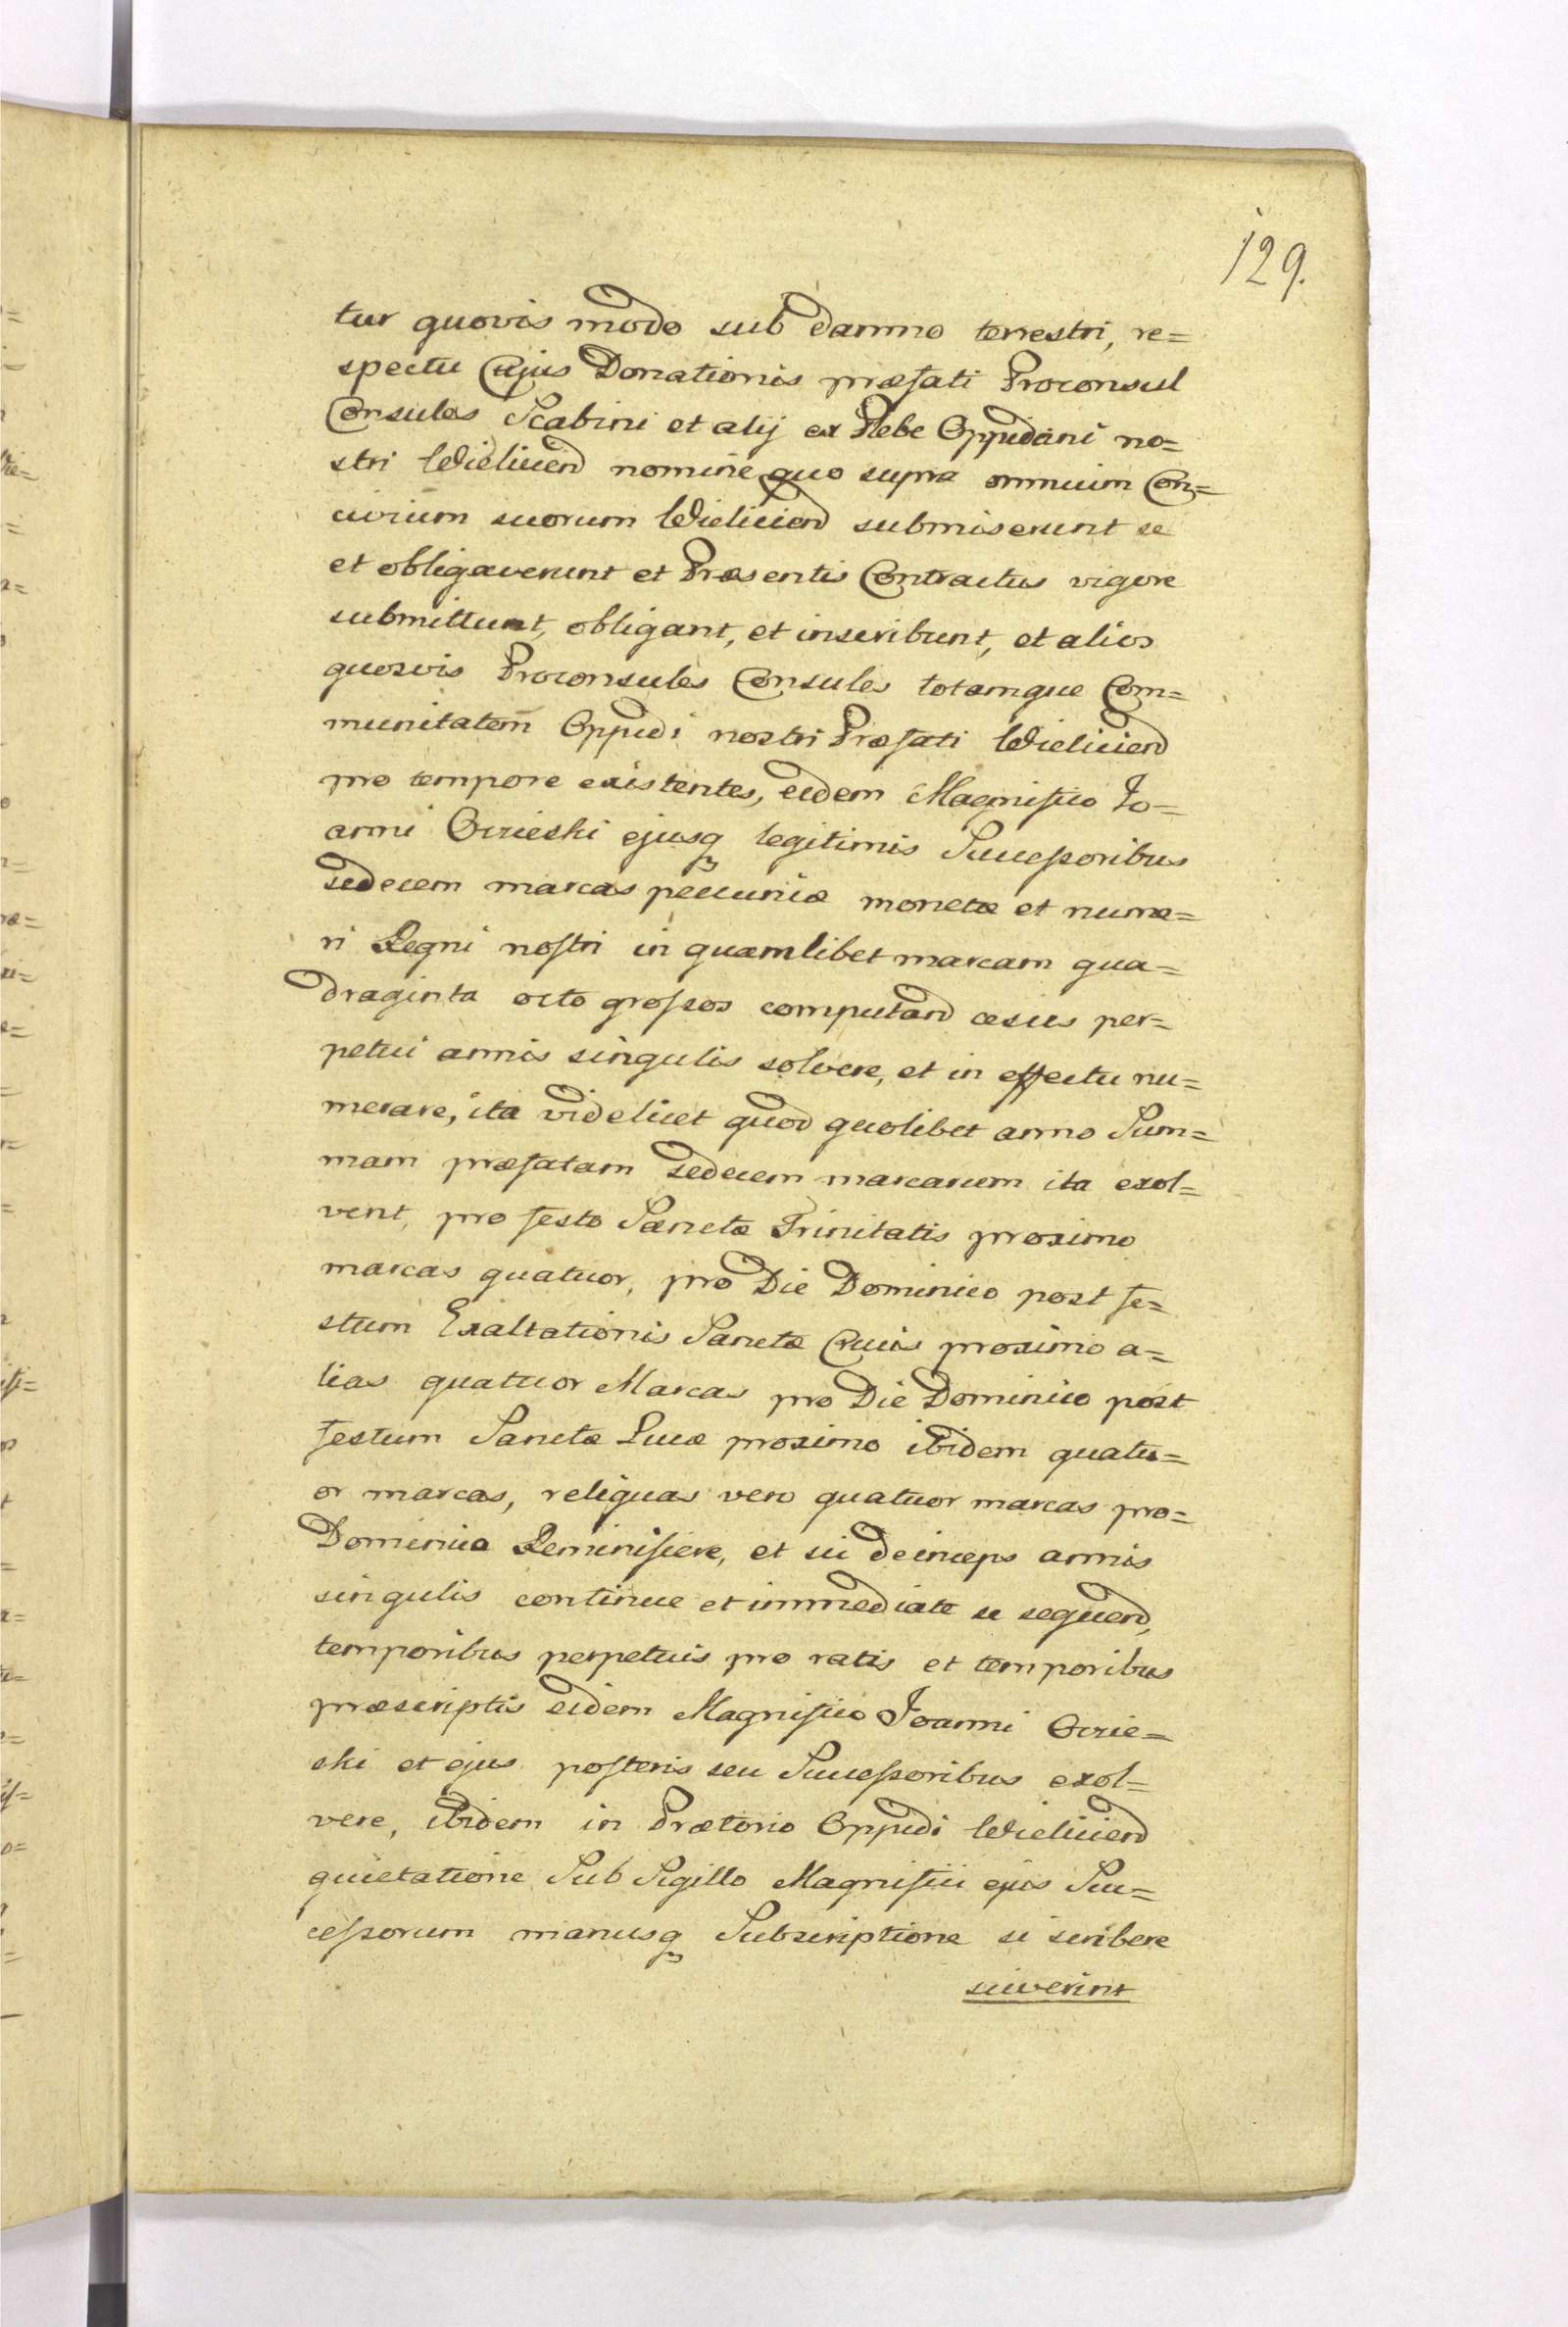 129.
tur quovis modo sub damno terrestri, re=
spectu Cujus Donationis præfati Proconsul
Consules Scabini et alij ex Plebe Oppidani no=
stri Wieliciend nomine quo supra omnium Con=
civium suorum Wieliciend submiserunt se
et obligaverunt et Præsentis Contractus vigore
submittunt, obligant, et inscribunt, et alios
quosvis Proconsules Consules totamque Com=
munitatem Oppidi nostri Præfati Wieliciend
pro tempore existentes, eidem Magnifico Jo=
anni Oczieski ejusq legitimis Successoribus
sedecem marcas pecuniæ monetæ et nume=
ri Regni nostri in quamlibet marcam qua=
draginta octo grossos computand cesus per=
petui annis singulis solvere, et in effectu nu=
merare, ita videlicet quod quolibet anno Sum=
mam præfatam sedecem marcarum ita exol=
vent, pro festo Sanctæ Trinitatis proximo
marcas quatuor, pro Die Dominico post fe=
stum Exaltationis Sanctæ Crucis proximo a=
lias quatuor Marcas pro Die Dominico post
festum Sanctæ Lucæ proximo ibidem quatu=
or marcas, reliquas vero quatuor marcas pro=
Dominica Reminiscere, et sic deinceps annis
singulis continue et immediate se sequend,
temporibus perpetuis pro ratis et temporibus
præscriptis eidem Magnifico Joanni Oczie=
ski et ejus posteris seu Successoribus exol=
vere, ibidem in Prætorio Oppidi Wieliciend
quietatione Sub Sigillo Magnifici ejus Suc=
cessorum manusq Subscriptione si scribere
sciverint